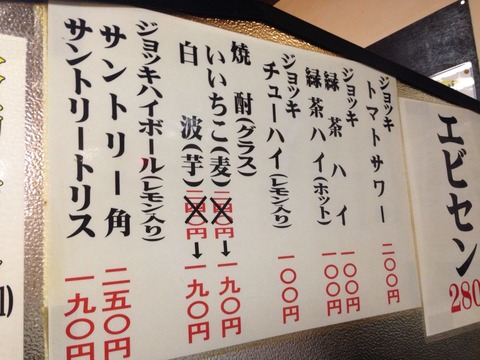 エビセン 280
ジョッキ
トマトサワー 二〇〇円
ジョッキ
緑茶ハイ 一〇〇円
緑茶ハイ(ホット) 一〇〇円
ジョッキ
チューハイ(レモン入り) 一〇〇円
焼酎(グラス)
いいちこ(麦) → 一九〇円
白波(芋) → 一九〇円
ジョッキハイボール(レモン入り)
サントリー角 二五〇円
サントリートリス 一九〇円